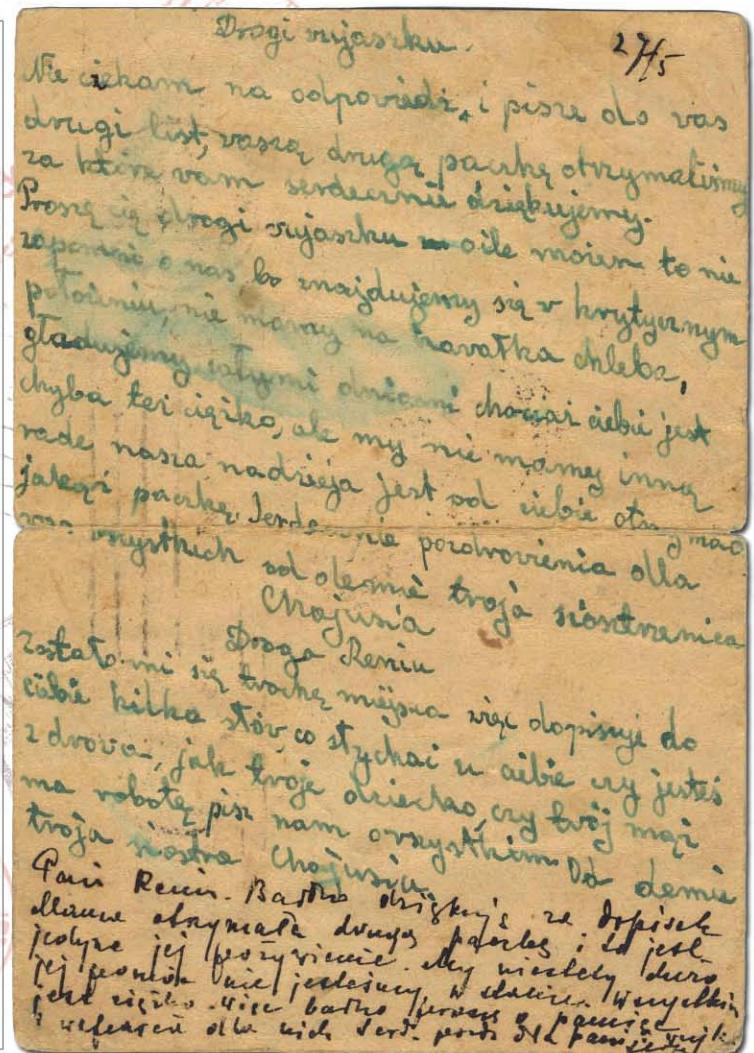 Drogi vujaszku.
27/5
Nie ciekam na odpoviedź, i pisze do vas
drugi list, vaszą drugą paczkę otrzymaliśmy
za które vam serdecznie dziękujemy.
Proszę cię drogi vujaszku oile możesz to nie
zapomni o nas, bo znajdujemy się v krytycznym
położeniu, nie mamy na kavałka chleba,
gładujemy całymi dniami chociaż ciebie jest
chyba też ciężko, ale my nie mamy inną
radę, nasza nadzieja jest od ciebie otrzymać
jakąś paczkę. Serdecznie pozdrovienia dlla
vas vszystkich od demie tvoja siostrzenica
Chajusia
Droga Reniu
Zostało mi się trochę miejsca vięc dopisuje do
ciebie kilka słóv, co słychać u ciebie czy jesteś
zdrova, jak tvoje dziecko, czy tvój mąż
ma robotę, pisz nam ovszystkim Od demie
tvoja siostra Chajusia.
Pani Reniu. Bardzo dziękuję za dopisek
Mama otrzymała drugą paczkę i to jest
jedyne jej pożywienie. My niestety dużo
jej pomóc nie jesteśmy w stanie. Wszystkim
jest ciężko więc bardzo proszę o pamięć
dla nich Serd. pozdr. dla